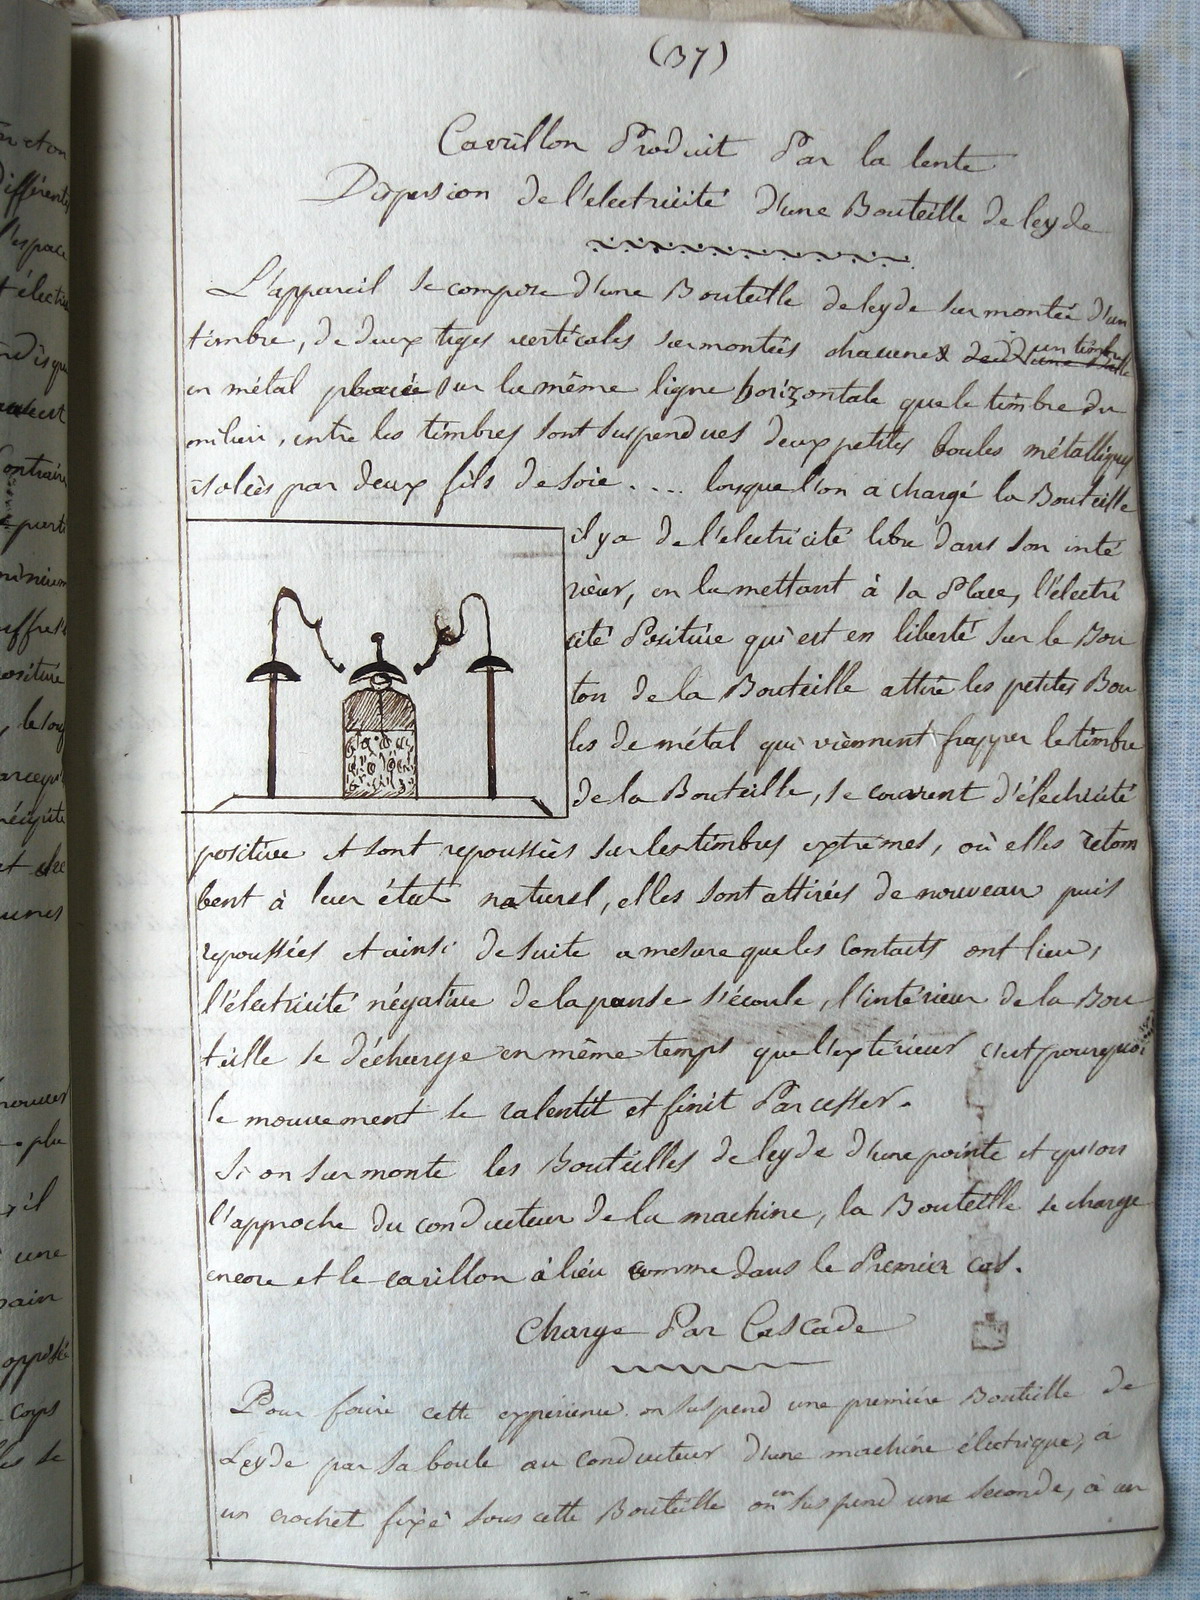 (37)
Carillon Produit Par la lente
Dispersion de l'electricité d'une Bouteille de leyde
L'appareil se compose d'une Bouteille de leyde surmontée d'un
timbre, de deux tiges verticales surmontées chacunes un timbre
en métal placée sur la même ligne horizontale que le timbre du
milieu, entre les timbres sont suspendues deux petites boules métalliques
isolées par deux fils de soie.... lorsque l'on a chargé la Bouteille
il y a de l'electricité libre dans son inté
rieur, en la mettant à sa Place, l'électri
cité Positive qui est en liberté sur le Bou
ton de la Bouteille attire les petites Bou
les de métal qui viennent frapper le timbre
de la Bouteille, se couvrent d'électricité
positive et sont repoussées sur les timbres extrêmes, où elles retom
bent à leur état naturel, elles sont attirées de nouveau puis
repoussées et ainsi de suite a mesure que les Contacts ont lieu,
l'électricité négative de la panse s'écoule, l'intérieur de la Bou
teille se décharge en même temps que l'extérieur c'est pourquoi
le mouvement se ralentit et finit Par cesser.
Si on surmonte les Bouteilles de leyde d'une pointe et qu'on
l'approche du conducteur de la machine, la Bouteille se charge
encore et le carillon à lieu comme dans le Premier cas.
Charge Par Cascade
Pour faire cette expérience on suspend une première Bouteille de
Leyde par sa boule au conducteur d'une machine électrique, à
un crochet fixé sous cette Bouteille on en suspend une seconde, à un